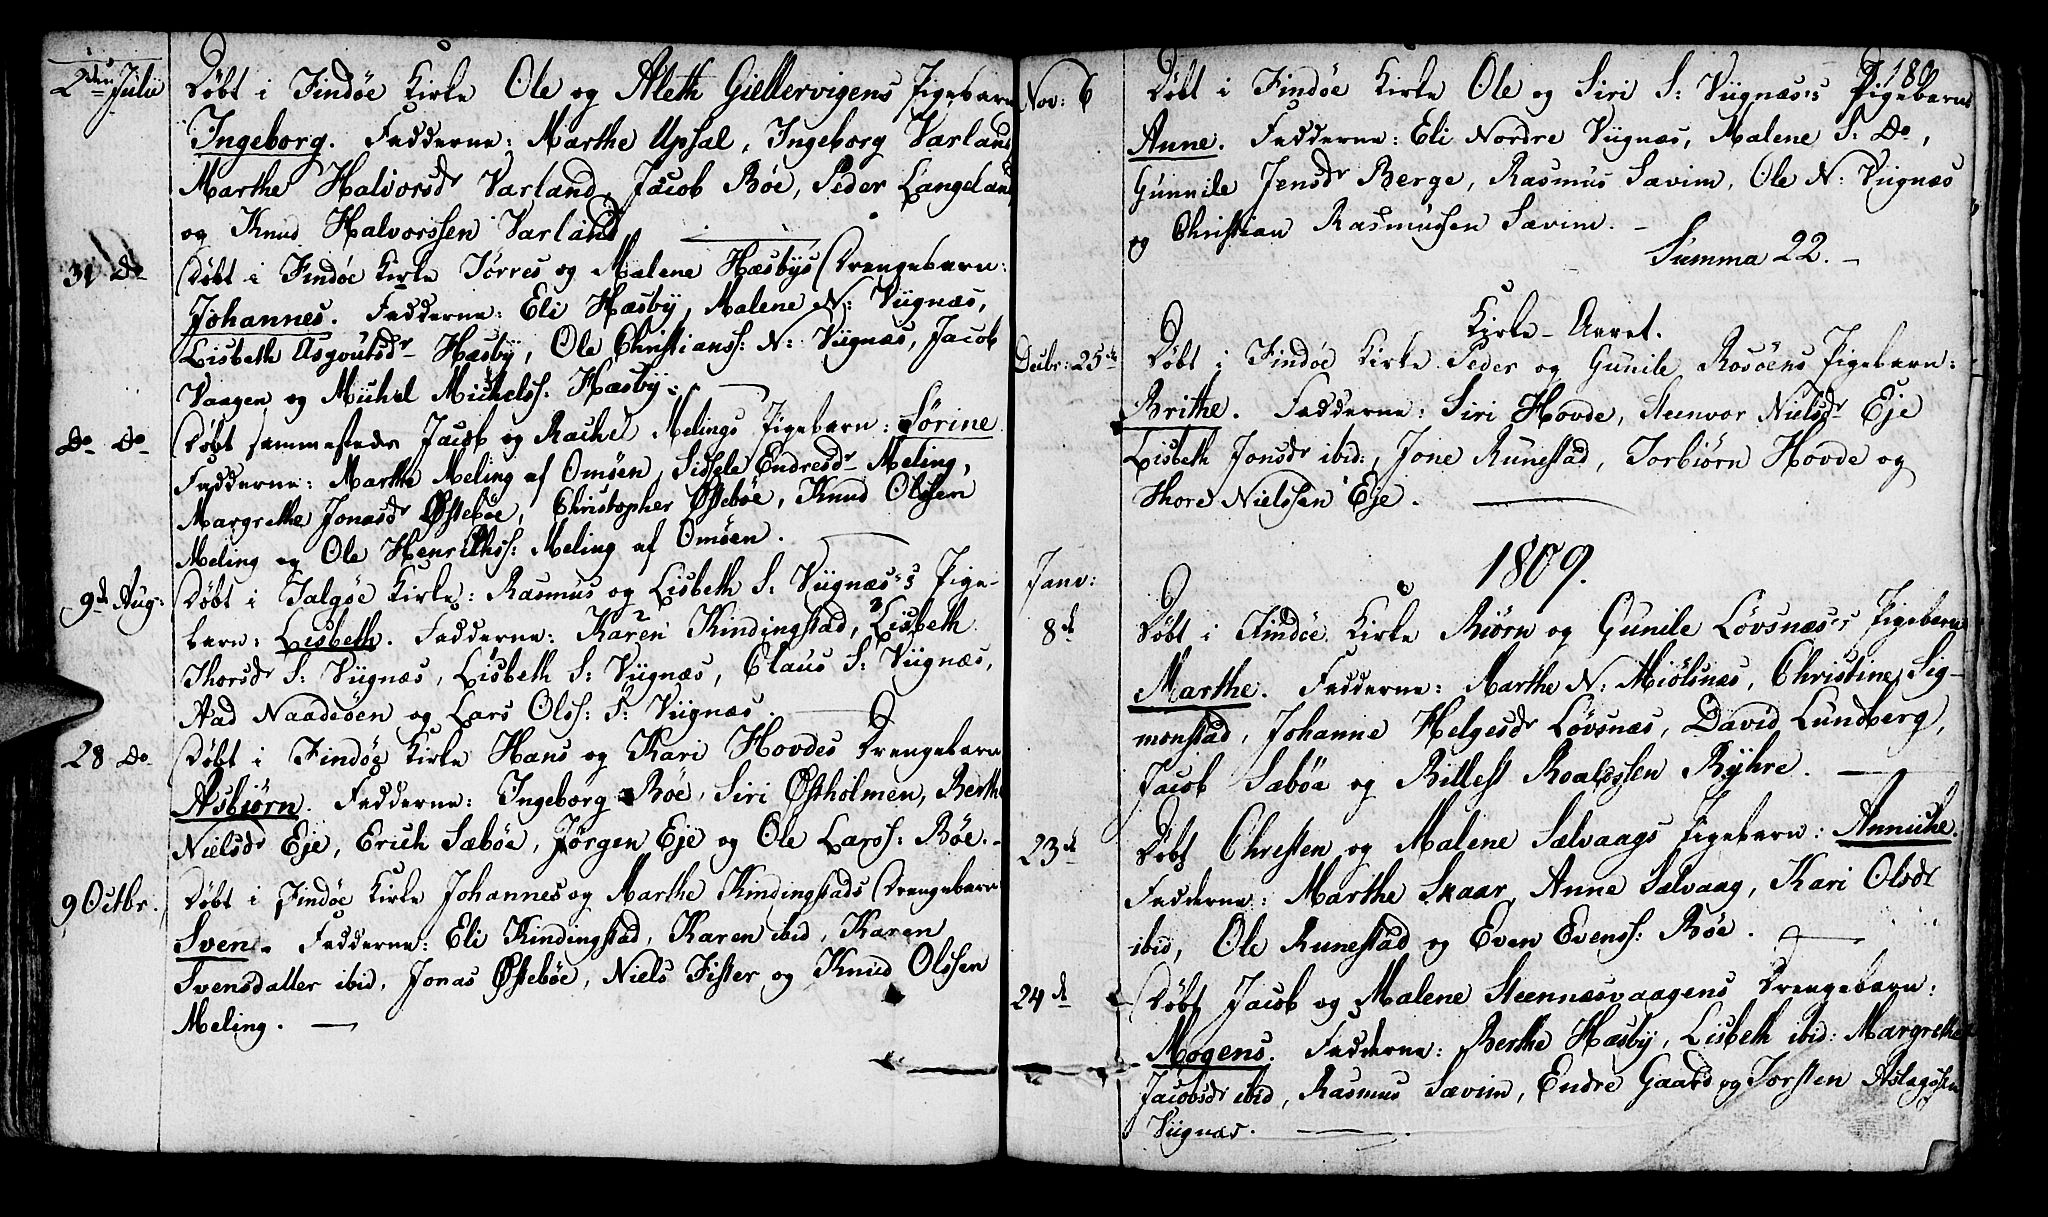 2den Julii Døbt i Findøe Kirke Ole og Aleth Giellervigens Pigebarn
Ingeborg. Fadderne: Marthe Upsal, Ingeborg Varland
Marthe Halvorsdr Varland, Jacob Bøe, Peder Langeland
og Knud Halvorssen Varland
31 Do Døbt i Findøe Kirke Tørres og Malene Hæsbÿs Drengebarn:
Johannes. Fadderne: Eli Hæsbÿ, Malene N: Viignæs,
Lisbeth Asgoutsdr Hæsbÿ, Ole Christianss: N: Viignæs, Jacob
Vaagen og Michel Michelss: Hæsbÿ.
Do Do Døbt sammesteds Jacob og Rachel Melings Pigebarn: Sørine
Fadderne: Marthe Meling af Omøen, Sidsele Endresdr Meling,
Margrethe Jonasdr Østebøe, Christopher Østebøe, Knud Olssen
Meling og Ole Henrichss: Meling af Omøen.
9d Aug: Døbt i Talgøe Kirke: Rasmus og Lisbeth S: Viignæs's Pige-
barn: Lisbeth. Fadderne: Karen Kindingstad, Lisbeth
Thorsdr S: Viignæs, Lisbeth S: Viignæs, Claus S: Viignæs,
Aad Naadeøen og Lars Olss: S: Viignæs.
28 Do Døbt i Findøe Kirke Hans og Kari Hovdes Drengebarn
Asbiørn. Fadderne: Ingeborg Bøe, Siri Østholmen, Berthe
Nielsdr Eje, Erich Sæbøe, Jørgen Eje og Ole Larss: Bøe.
9 Octbr. Døbt i Findøe Kirke Johannes og Marthe Kindingstads Drengebarn
Sven. Fadderne: Eli Kindingstad, Karen ibid, Karen
Svensdatter ibid, Jonas Østebøe, Niels Fister og Knud Olssen
Meling.
180
Nov: 6 Døbt i Findøe Kirke Ole og Siri S: Viignæs's Pigebarn
Anne. Fadderne: Eli Nordre Viignæs, Malene S: Do,
Gunnile Jensdr Berge, Rasmus Savim, Ole N: Viignæs
og Christian Rasmussen Sævim.
Summa 22.
Kirke-Aaret.
Decbr: 25de Døbt i Findøe Kirke Peder og Gunile Rosøens Pigebarn:
Brithe. Fadderne: Siri Hovde, Steenvor Nielsdr Eje
Lisbeth Jonsdr ibid:, Jone Runestad, Torbiørn Hovde og
Thore Nielssen Eje.
1809.
Janv:
8d Døbt i Findøe Kirke Biørn og Gunile Løvsnæs's Pigebarn
Marthe. Fadderne: Marthe N: Miølsnæs, Christine Sig-
monstad, Johanne Helgesdr Løvsnæs, David Lundberg,
Jacob Sæbøe og Billest Roaldssen Rÿhre.
23d Døbt Christen og Malene Sælvaags Pigebarn: Anniche.
Fadderne: Marthe Skaar, Anne Sælvaag, Kari Olsdr
ibid, Ole Runestad og Even Evenss: Bøe.
24d Døbt Jacob og Malene Steennæsvaagens Drengebarn:
Mogens. Fadderne: Berthe Hæsbÿ, Lisbeth ibid: Margrethe
Jacobsdr ibid, Rasmus Sævim, Endre Gaard og Torsten Aslagssen
Viignæs.